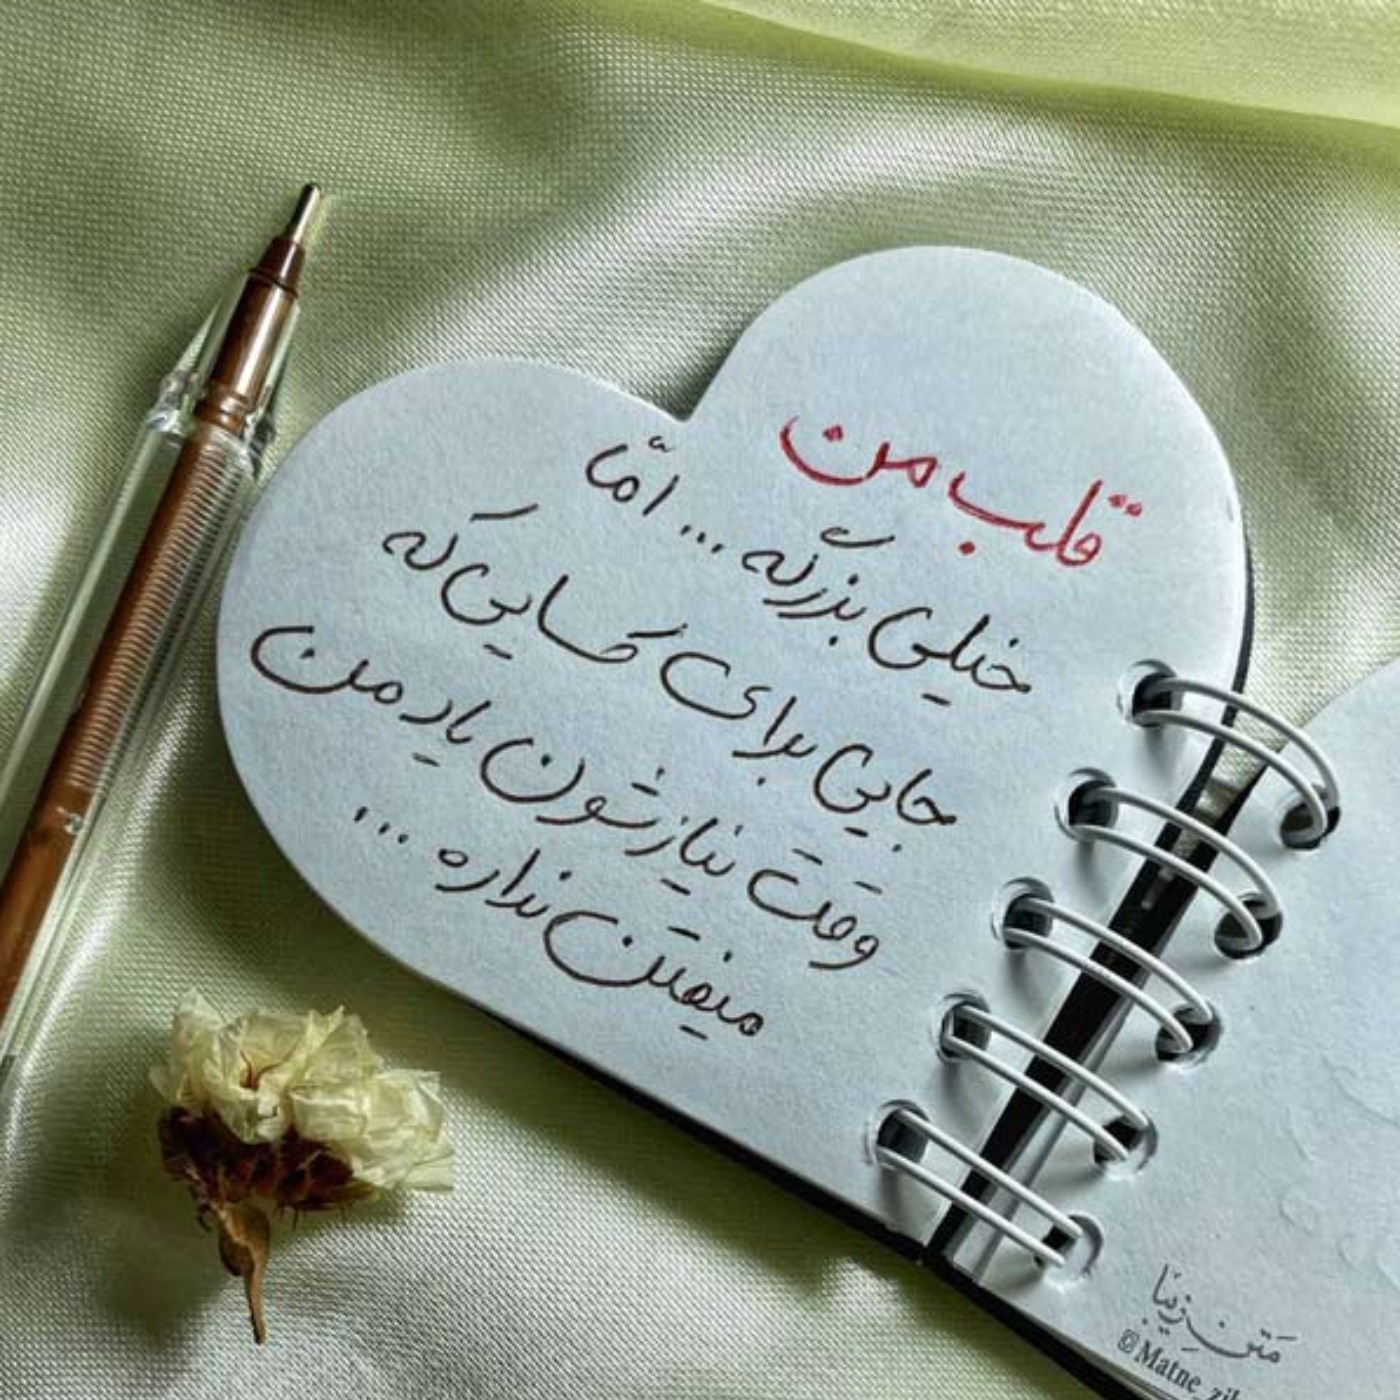 قلب من
خیلی بزرگه ... امّا
جایی برای کسایی که
وقت نیازشون یاد من
میفتن نداره ...
متن زیبا
©Matne_zib